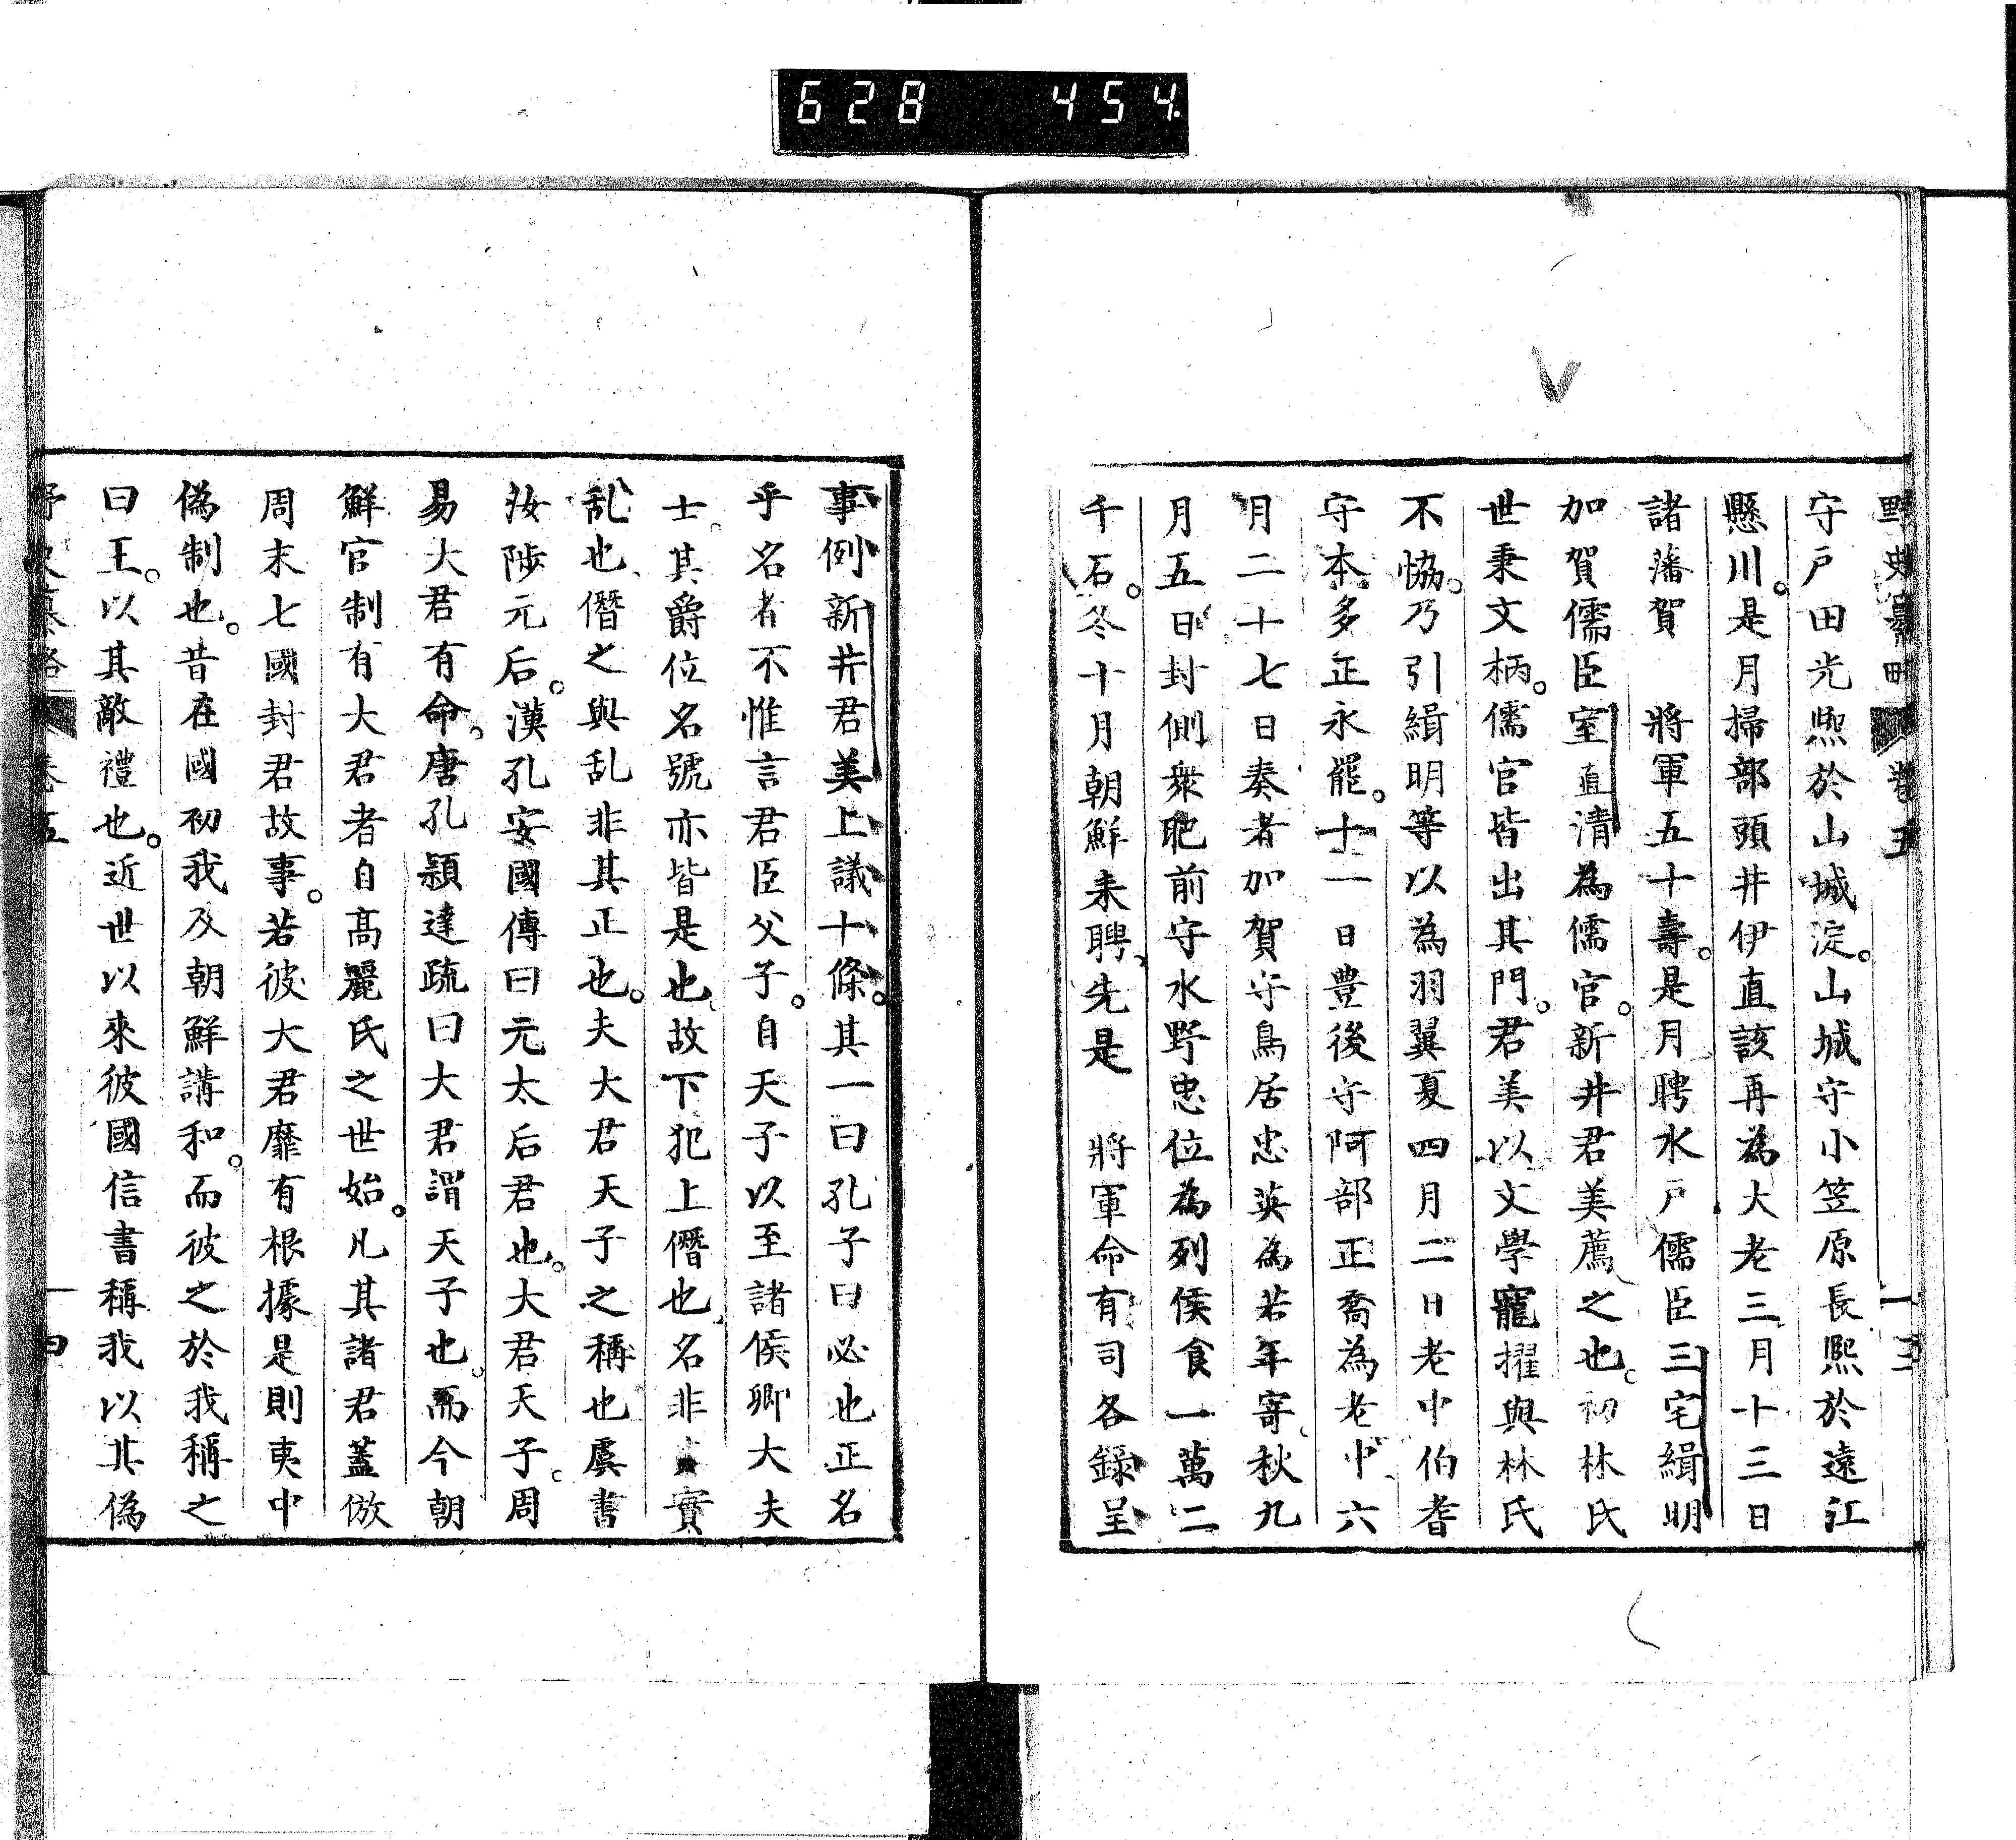 628 454
野史纂略 卷五 十三
守戸田光熙於山城淀。山城守小笠原長熙於遠江
懸川。是月掃部頭井伊直該再為大老三月十三日
諸藩賀 將軍五十壽。是月聘水戸儒臣三宅緝明
加賀儒臣室直清為儒官。新井君美薦之也。初林氏
世秉文柄。儒官皆出其門。君美以文學寵擢與林氏
不恊。乃引緝明等以為羽翼夏四月二日老中伯耆
守本多正永罷。十一日豊後守阿部正喬為老中六
月二十七日奏者加賀守鳥居忠英為若年寄。秋九
月五日封側衆肥前守水野忠位為列侯食一萬二
千石。冬十月朝鮮来聘、先是 將軍命有司各錄呈
事例新井君美上議十條。其一曰孔子曰必也正名
乎名者不惟言君臣父子。自天子以至諸侯卿大夫
士。其爵位名號亦皆是也、故下犯上僭也、名非實
乱也、僭之與乱非其正也。夫大君天子之稱也虞書
汝陟元后。漢孔安國傳曰元太后君也。大君天子。周
易大君有命。唐孔穎達疏曰大君謂天子也。而今朝
鮮官制有大君者自髙麗氏之世始。凡其諸君蓋倣
周末七國封君故事。若彼大君靡有根據是則夷中
偽制也。昔在國初我及朝鮮講和。而彼之於我稱之
曰王。以其敵禮也。近世以來彼國信書稱我以其偽
野史纂略 卷五 十四